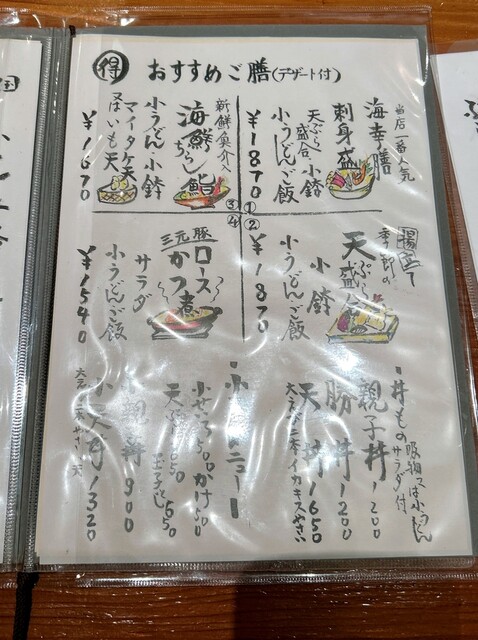 得 おすすめご膳(デザート付)
当店一番人気
海幸膳
刺身盛
天ぷら盛合 小鉢
小うどん ご飯
¥1870
①
揚立て
季節の
天ぷら盛合
小鉢
小うどん ご飯
¥1870
②
新鮮魚介入
海鮮ちらし鮨
小うどん 小鉢
マイタケ天
又はいも天
¥1670
③
三元豚
ロースかつ煮
サラダ
小うどん ご飯
¥1540
④
・丼もの 吸物又は小うどん
サラダ付
親子丼 1200
勝丼 1200
天丼 1650
大えび二本イカキスやさい
・小 メニュー
小せいろ500 かけ500
天ぷら1050
玉子とじ650
小親丼 900
小天丼 1320